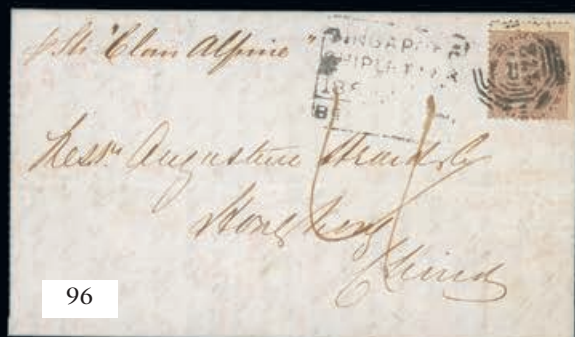 p Str "Clan Alpine"
SINGAPORE
SHIP LETTER
186
B
Messrs Augustine Heard & Co
Hong Kong
China
96